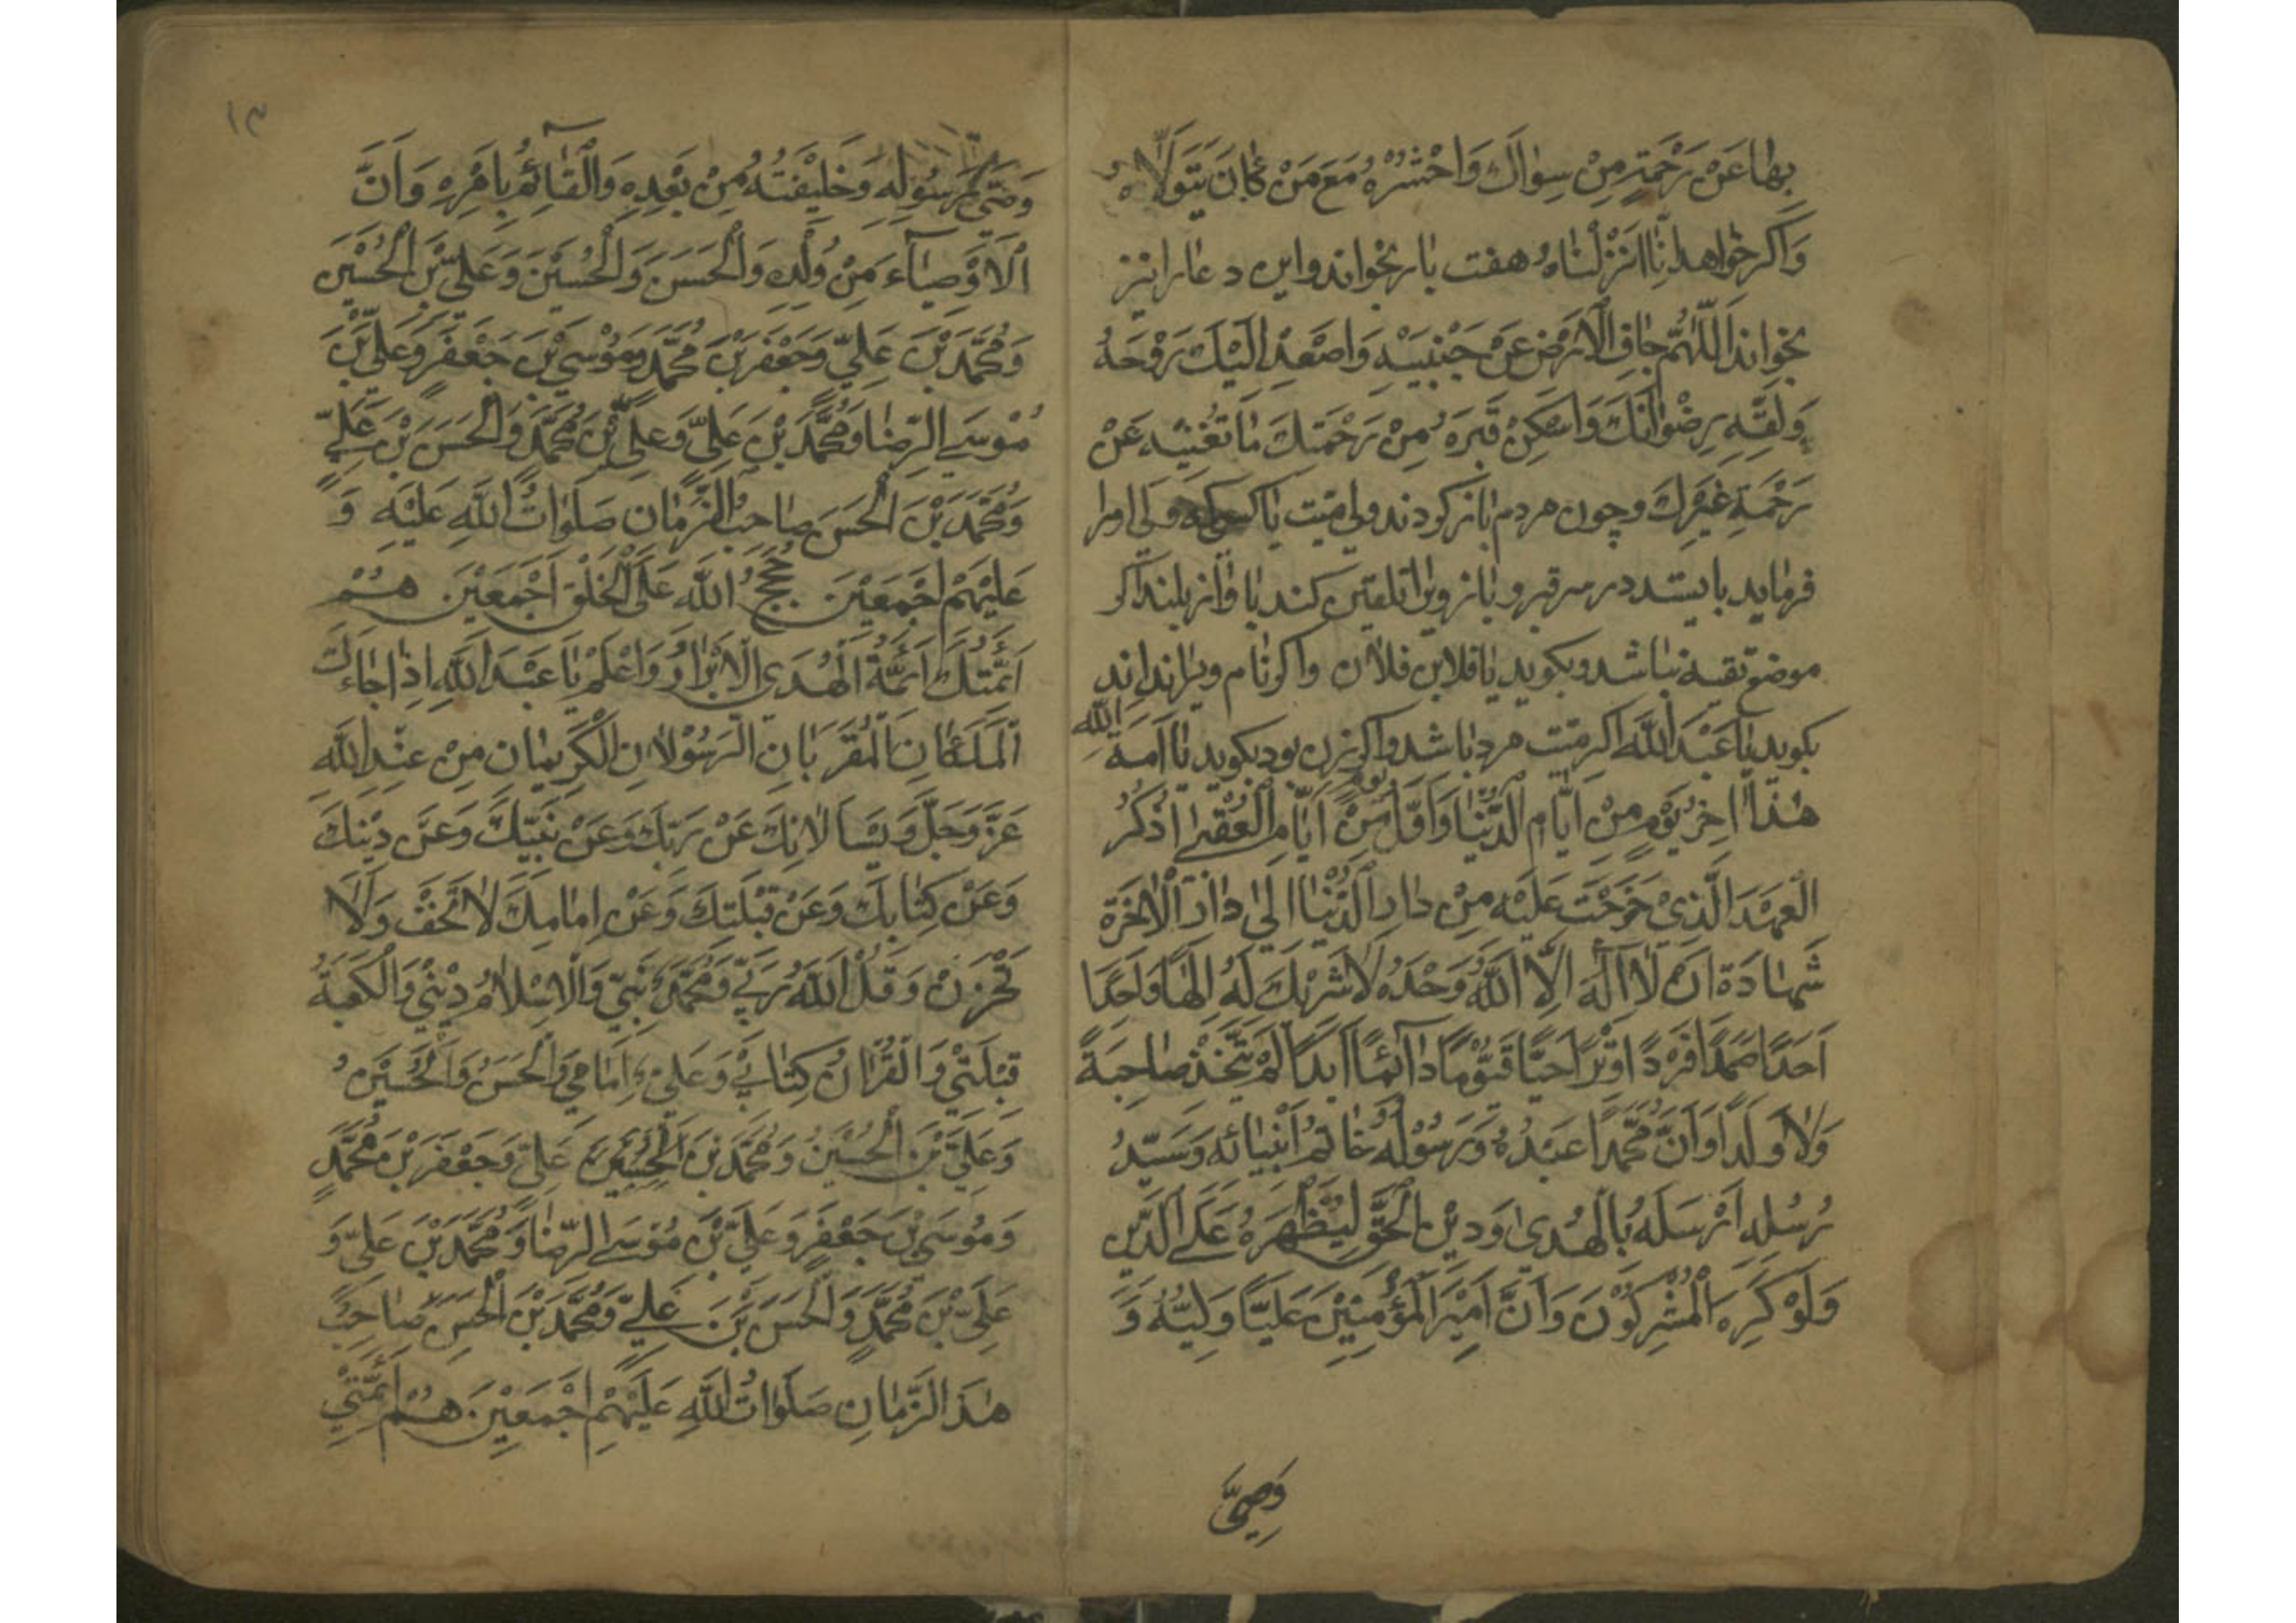 بِهٰا عَنْ رَحْمَةِ مِنْ سِوٰاكَ وَاحْشُرْهُ مَعَ مَنْ كٰانَ يَتَوَلّٰاهُ
وَاكر خواهد اِنّٰا اَنْزَلْنٰاهُ هفت بار بخواند واين دعا را نيز
بخواند اَللّٰهُمَّ جٰافِ الْاَرْضَ عَنْ جَنْبَيْهِ وَاصْعَدْ اِلَيْكَ رَوْحَهُ
وَلَقِّهِ بِرِضْوٰانَكَ وَاَسْكِنْ قَبْرَهُ مِنْ رَحْمَتِكَ مٰا تُغْنيْهِ عَنْ
رَحْمَةِ غَيْرِكَ وچون مردم باز كردند ولى ميت يا كسى كه ولى او را
فرمايد بايستد در سر قبر و باز ويرا تلقين كند باواز بلند اكر
موضع تقيه نباشد وبكويد يا فلان بن فلان واكر نام ويرا نداند
بكويد يٰا عَبْدَ اللّٰهِ اكر ميت مرد باشد واكر زن بود بكويد يٰا اَمَةَ اللّٰهِ
هٰذٰا اٰخِرُ يَوْمٍ مِنْ اَيّٰامِ الدُّنْيٰا وَاَوَّلُ يَوْمٍ مِنْ اَيّٰامِ الْعُقْبىٰ اُذْكُرُ
الْعَهْدَ الَّذىْ خَرَجْتَ عَلَيْهِ مِنْ دٰارِ الدُّنْيٰا اِلىٰ دٰارِ الْاٰخِرَةِ
شَهٰادَةَ اَنْ لٰا اِلٰهَ اِلَّا اللّٰهُ وَحْدَهُ لٰا شَرْيكَ لَهُ اِلٰهًا وٰاحِدًا
اَحَدًا صَمَدًا فَرْدًا وِتْرًا حَيًّا قَيُّوْمًا دٰائِمًا اَبَدًا لَمْ يَتَّخِذْ صٰاحِبَةً
وَلٰا وَلَدًا وَاَنَّ مُحَمَّدًا عَبْدُهُ وَرَسُوْلُهُ خٰاتَمُ اَنْبِيٰائِهِ وَسَيِّدُ
رُسُلِهِ اَرْسَلَهُ بِالْهُدىٰ وَدِيْنِ الْحَقِّ لِيُظْهِرَهُ عَلَى الدِّيْنِ
وَلَوْ كَرِهَ الْمُشْرِكُوْنَ وَاَنَّ اَمِيْرَ الْمُؤْمِنِيْنَ عَلِيًّا وَلِيُّهُ وَ
وَصِيُّ
١٣
وَصِيُّ رَسُوْلِهِ وَخَلِيْفَتُهُ مِنْ بَعْدِهِ وَالْقٰائِمُ بِاَمْرِهِ وَاَنَّ
الْاَوْصِيٰآءَ مِنْ وُلْدِهِ وَالْحَسَنَ وَالْحُسَيْنَ وَعَلِىَّ بْنَ الْحُسَيْنِ
وَمُحَمَّدَ بْنَ عَلِيٍّ وَجَعْفَرَ بْنَ مُحَمَّدٍ وَمُوْسَى بْنَ جَعْفَرٍ وَعَلِىَّ بْنَ
مُوْسَى الرِّضٰا وَمُحَمَّدَ بْنَ عَلِىٍّ وَعَلِىَّ بْنَ مُحَمَّدٍ وَالْحَسَنَ بْنَ عَلِىٍّ
وَمُحَمَّدَ بْنَ الْحَسَنِ صٰاحِبَ الزَّمٰانِ صَلَوٰاتُ اللّٰهِ عَلَيْهِ وَ
عَلَيْهِمْ اَجْمَعِيْنَ حُجَجُ اللّٰهِ عَلَى الْخَلْقِ اَجْمَعِيْنَ هُمْ
اَئِمَّتُكَ اَئِمَّةُ الْهُدَى الْاَبْرٰارُ وَاعْلَمْ يٰا عَبْدَ اللّٰهِ اِذٰا جٰاءَكَ
الْمَلَكٰانِ الْمُقَرَّبٰانِ الرَّسُوْلٰانِ الْكَرِيْمٰانِ مِنْ عِنْدِ اللّٰهِ
عَزَّ وَجَلَّ وَيَسْاَلٰانِكَ عَنْ رَبِّكَ وَعَنْ نَبِيِّكَ وَعَنْ دِيْنِكَ
وَعَنْ كِتٰابِكَ وَعَنْ قِبْلَتِكَ وَعَنْ اِمٰامِكَ لٰا تَخَفْ وَلٰا
تَحْزَنْ وَقُلْ اَللّٰهُ رَبِّي وَمُحَمَّدٌ نَبِيّ وَالْاِسْلٰامُ دِيْنْي وَالْكَعْبَةُ
قِبْلَتِيْ وَالْقُرْاٰنُ كِتٰابِيْ وَعَلِىٌّ اِمٰامِي وَالْحَسَنُ وَالْحُسَيْنُ
وَعَلِيَّ بْنَ الْحُسَيْنِ وَمُحَمَّدَ بْنَ عَلِىٍّ وَجَعْفَرَ بْنَ مُحَمَّدٍ
وَمُوْسَى بْنَ جَعْفَرٍ وَعَلِىَّ بْنَ مُوْسَى الرِّضٰا وَمُحَمَّدَ بْنَ عَلِىٍّ وَ
عَلِىَّ بْنَ مُحَمَّدٍ وَالْحَسَنَ بْنَ عَلِىٍّ وَمُحَمَّدَ بْنَ الْحَسَنِ صٰاحِبُ
هٰذَا الزَّمٰانِ صَلَوٰاتُ اللّٰهِ عَلَيْهِمْ اَجْمَعِيْنَ هُمْ اَئِمَّتِيْ